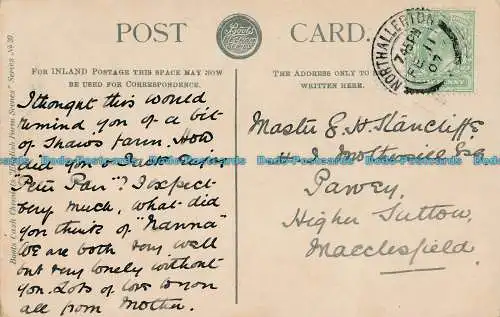 POST CARD.
Boots Cash Chemists "English Farm Scenes" Series No 39.
FOR INLAND POSTAGE THIS SPACE MAY NOW
BE USED FOR CORRESPONDENCE.
THE ADDRESS ONLY TO BE
WRITTEN HERE.
NORTHALLERTON
7 45 PM
FE 11
07
I thought this would
remind you of a bit
of Shaws farm. How
did you & enjoy
"Peter Pan"? I expect
very much, what did
you think of "Nanna"
We are both very well
but very lonely without
you. Lots of love to you
all from Mother.
Master G. H. Stancliffe
H. J. Esq
Pavey
Higher Sutton
Macclesfield